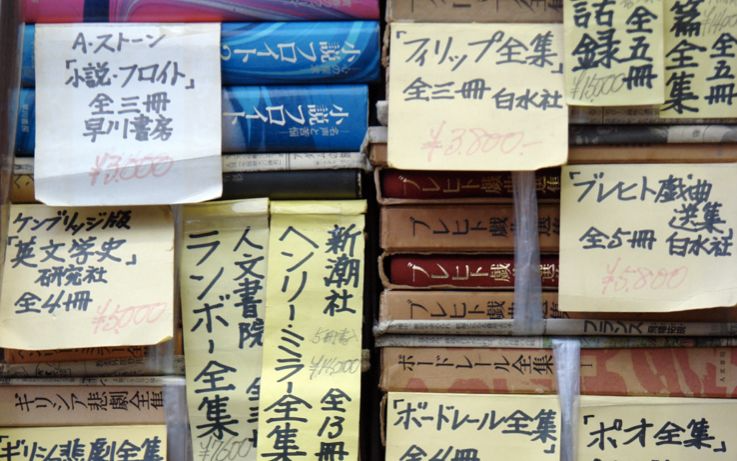 A・ストーン
「小説・フロイト」
全三冊
早川書房
¥3,000
小説フロイト2
小説フロイト
「フィリップ全集」
全三冊 白水社
¥3,800-
話録
全五冊
¥15000
篇全集
全五冊
ケンブリッジ版
「英文学史」
研究社
全4冊
¥5,000
人文書院
ランボー全集
全三
¥7500
新潮社
ヘンリー・ミラー全集
全13冊
「ブレヒト戯曲
選集」
全5冊 白水社
¥5,800
ブレヒト戯曲選集
ブレヒト戯曲
ブレヒト戯曲選
ブレヒト戯曲
フランス
ボードレール全集 I
人文書院
ギリシア悲劇全集
「ギリシア悲劇全集
「ボードレール全集」
全4冊
「ポオ全集」